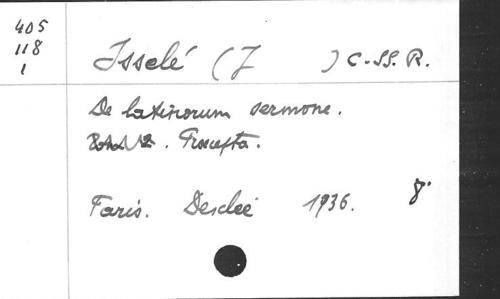 405
118
1
Isselé (J ) C.SS.R.
De latinorum sermone.
Praecepta.
Paris. Desclée 1936. 8°